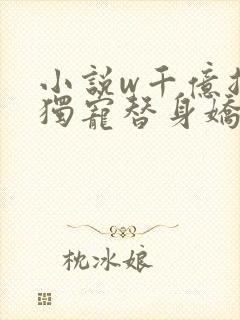 小說w千億
獨寵替身嬌
枕冰娘